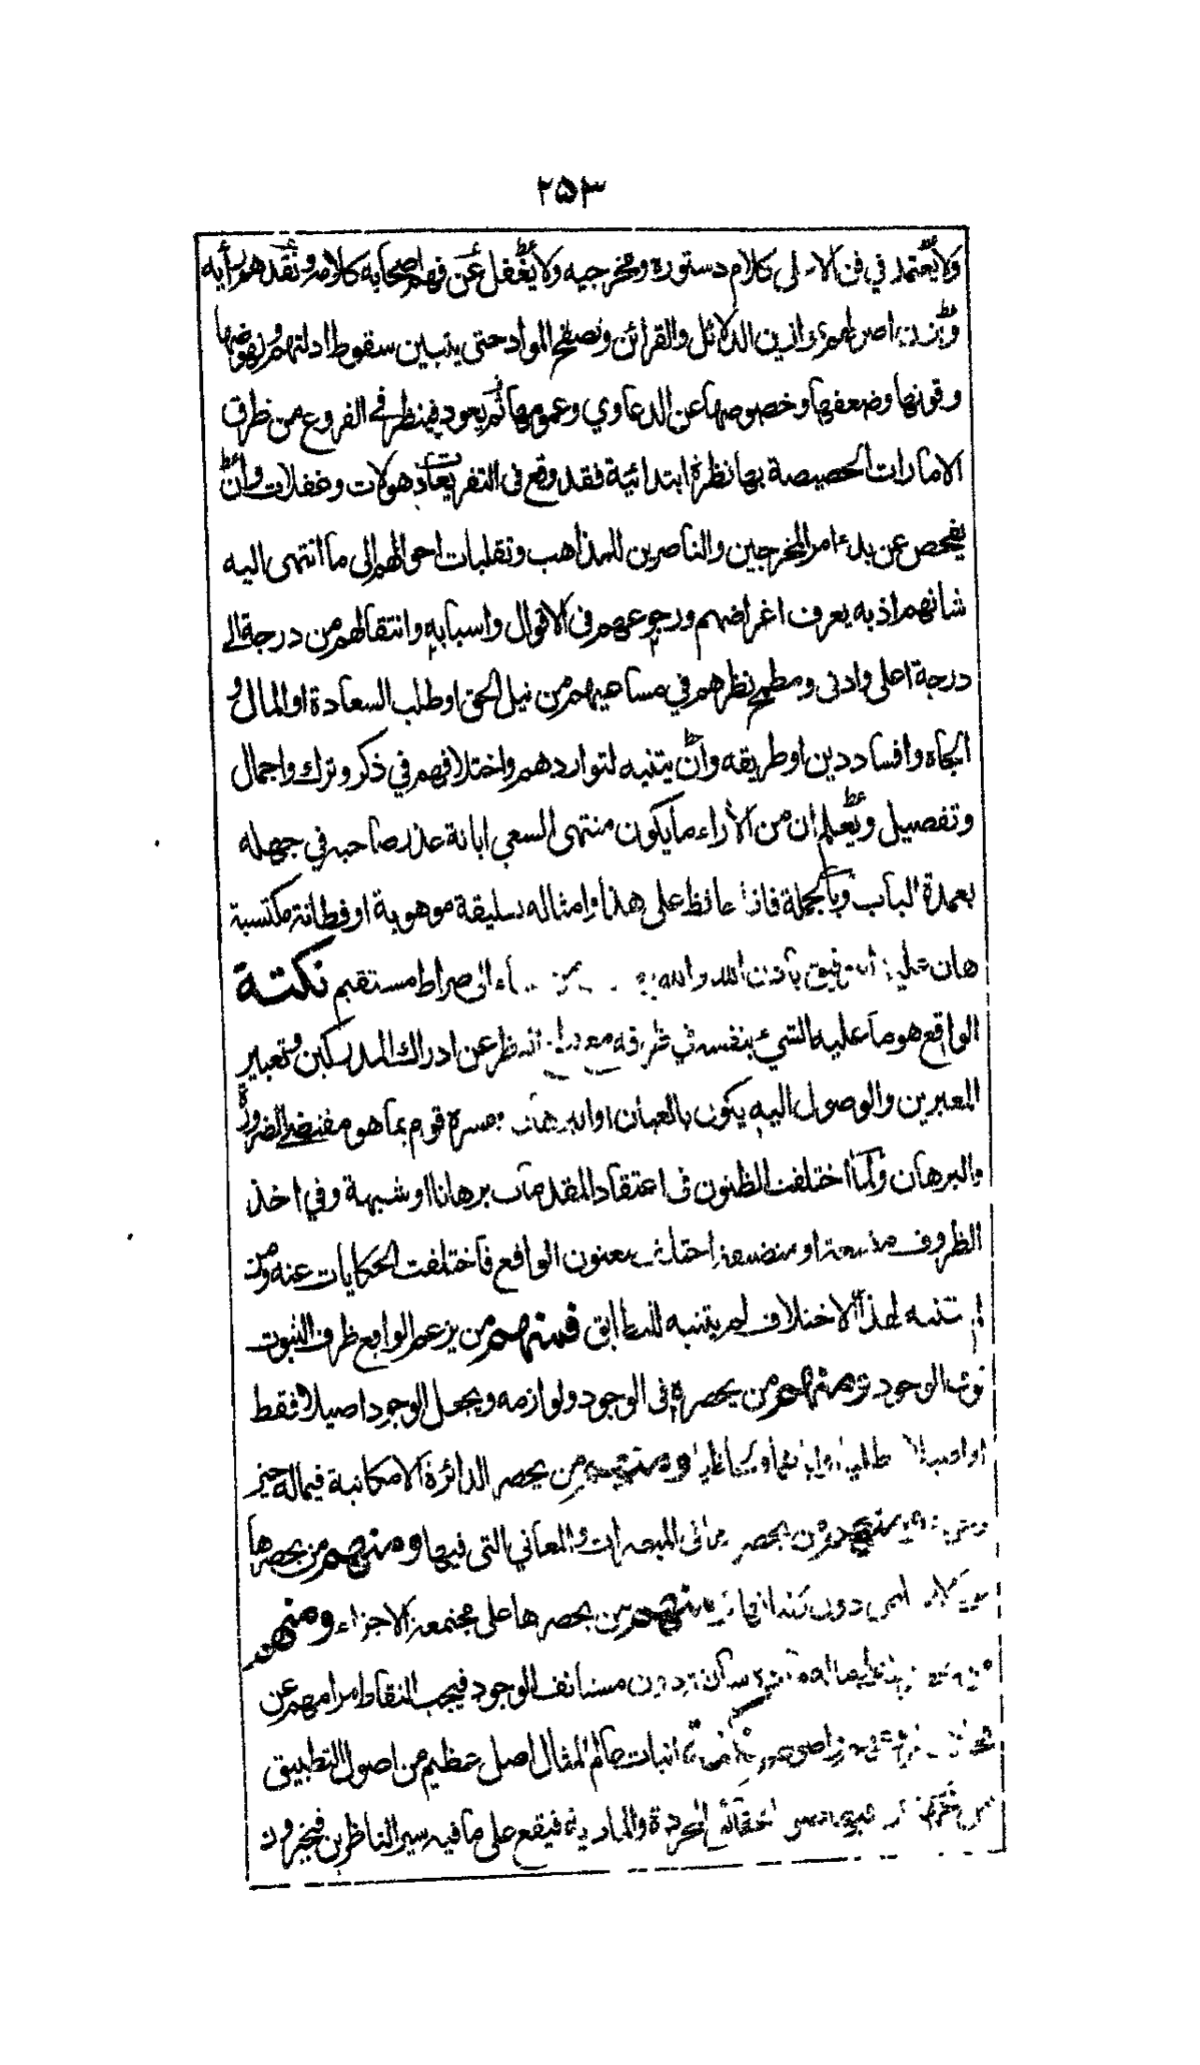 ٢٥٣
ولا يعتمد في فن الا على كلام دستوره ومخرجيه ولا يغفل عن فهم اصحابه كلامه ونقدهم رأيه
اصولهم موازين الدلائل والقرائن وتصفح المواد حتى يتبين سقوط ادلتهم ونهوضها
وقوتها وضعفها وخصوصها عن الدعاوي وعمومها ثم يعود فينظر في الفروع من طرق
الامارات الخصيصة بها نظرة ابتدائية فقد وقع في التفريعات ذهولات وغفلات وان
يفحص عن بدء امر المخرجين والناصرين للمذاهب وتقلبات احوالهم الى ما انتهى اليه
شانهم اذ به يعرف اغراضهم ورجوعهم في الاقوال واسبابه وانتقالهم من درجة الى
درجة اعلى وادنى ومطمح نظرهم في مساعيهم من نيل الحق او طلب السعادة او المال و
الجاه وافساد دين او طريقه وان يتنبه لتواردهم واختلافهم في ذكر وترك واجمال
وتفصيل ويعلم ان من الآراء ما يكون منتهى السعي ابانة عذر صاحبه في جهله
بعمدة الباب وبالجملة فاذا حافظ على هذا وامثاله بسليقة موهوبة او فطانة مكتسبة
هان عليه التوفيق باذن الله والله يهدي من يشاء الى صراط مستقيم نكتة
الواقع هو ما عليه الشيء بنفسه في ظرفه مع قطع النظر عن ادراك المدركين وتعبير
المعبرين والوصول اليه يكون بالعيان او البرهان قوم بما هو مقتضى الضرورة
والبرهان ولما اختلفت الظنون في اعتقاد المقدمات برهانا او شبهة وفي اخذ
الظروف متسعة او متضيقة اختلف معنون الواقع فاختلفت الحكايات عنه ومن
لم يتنبه لهذا الاختلاف لم يتنبه للتطابق فمنهم من يزعم الواقع ظرف الثبوت
فوق الوجود ومنهم من يحصره في الوجود ولوازمه ويجعل الوجود اصيلا فقط
او اصيلا ظليا ومنهم من يحصر الدائرة الامكانية فيما له حيز
ومنهم من يحصر في المبصرات والمعاني التي فيها ومنهم من يحصرها
دون ومنهم من يحصرها على مجتمعة الاجزاء ومنهم
دون مستانف الوجود فيجب التقاط مرامهم عن
اثبات عالم المثال اصل عظيم من اصول التطبيق
الحقائق المجردة والمادية فيقع على ما فيه سير الناظرين فيخبرون